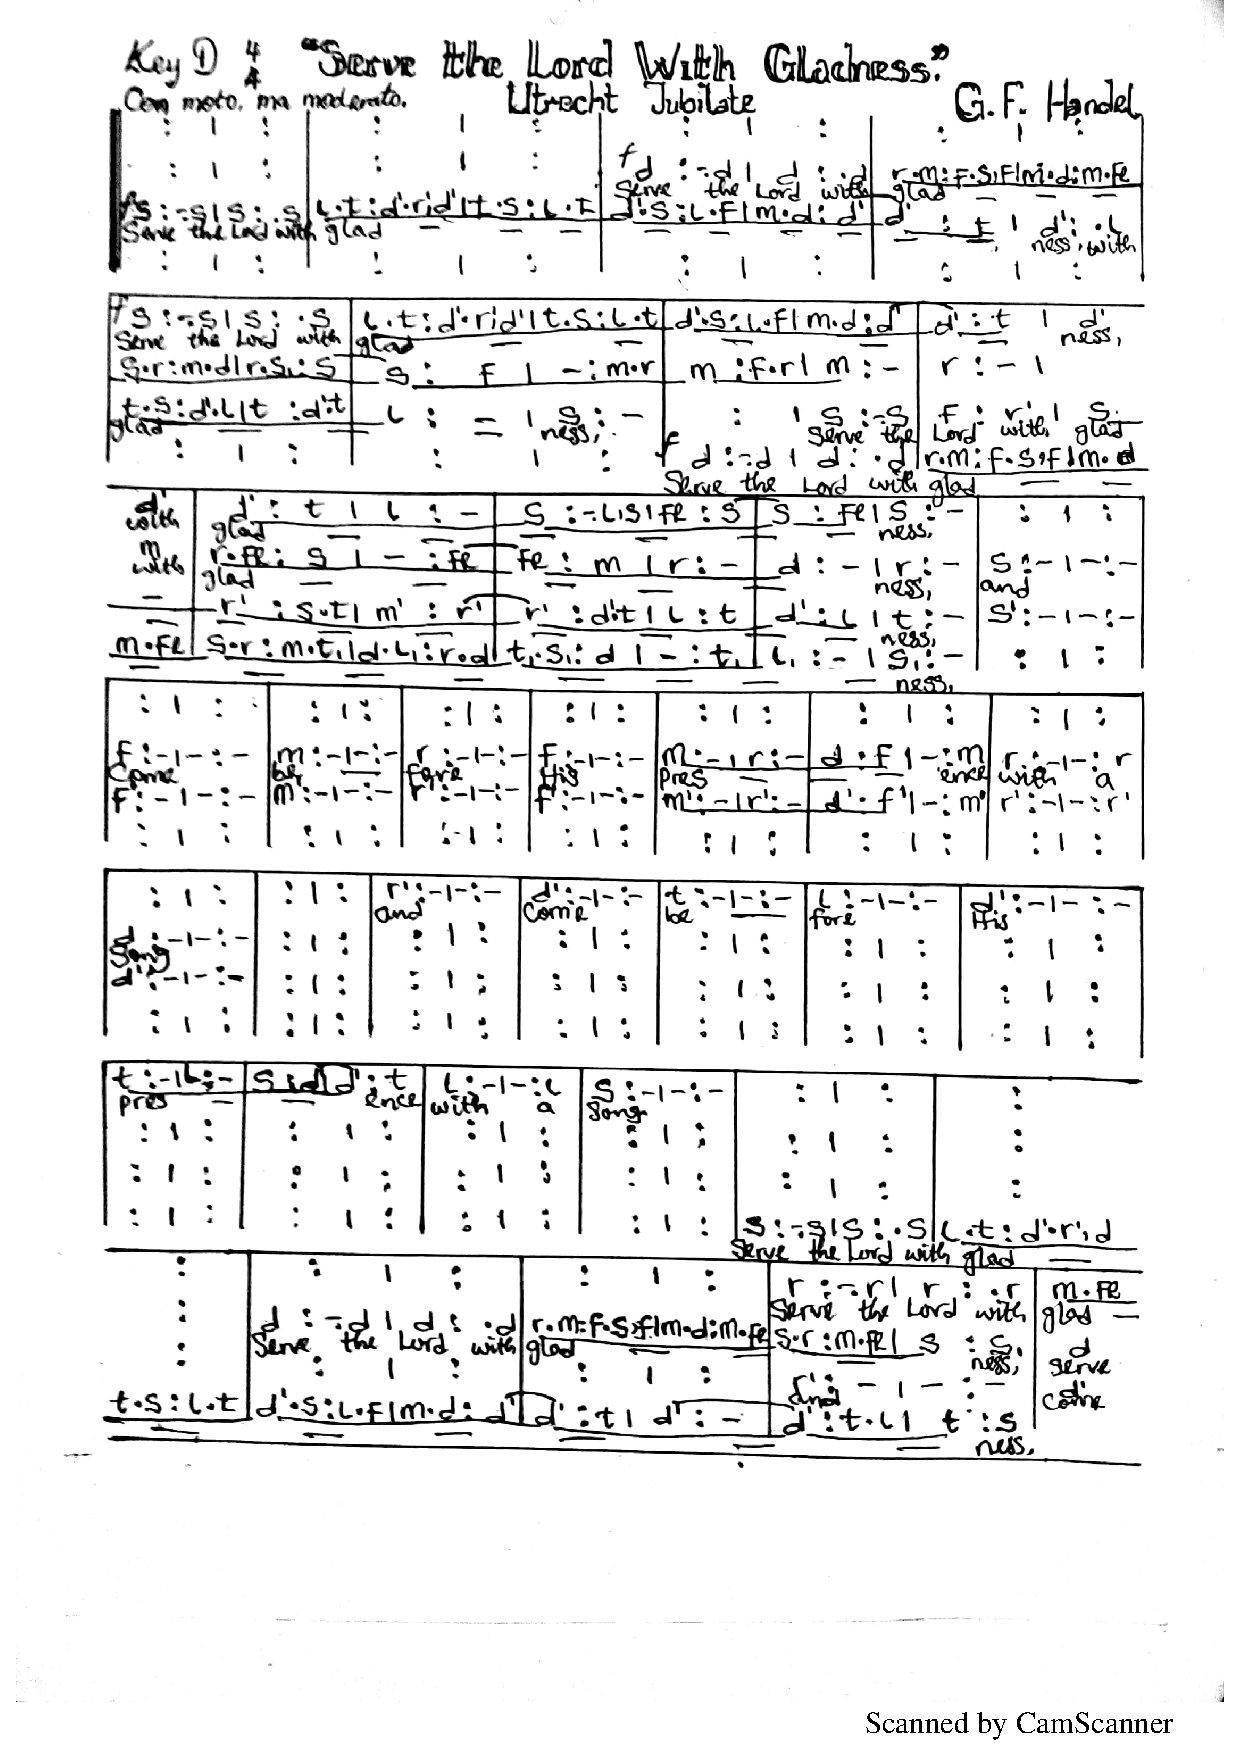 Key D 4/4 "Serve the Lord With Gladness."
Con moto, ma moderato. Utrecht Jubilate G. F. Handel
: | : : | : : | : : | :
: | : : | : f d :-.d | d : .d r.m:f.s,f|m.d:m.fe
Serve the Lord with glad
f s :-.s | s : .s l.t:d'.r',d'|t.s:l.t d'.s:l.f|m.d:d' d' : t | d' : .l
Serve the Lord with glad ness, with
: | : : | : : | : : | :
f s :-.s | s : .s l.t:d'.r',d'|t.s:l.t d'.s:l.f|m.d:d' d' : t | d'
Serve the Lord with glad ness,
s.r:m.d|r.s,:s s : f | - :m.r m :f.r | m : - r : - |
t.s:d'.l|t :d'.t l : - | s : - : | s :-.s f : r' | s
glad ness, Serve the Lord with glad
: | : : | : f d :-.d | d : .d r.m:f.s,f|m.d
Serve the Lord with glad
d' d' : t | l : - s :-.l,s|fe : s s : fe | s : - : | :
with glad ness,
m r.fe: s | - :fe fe : m | r : - d : - | r : - s :-|-:-
with glad ness, and
- r' : s.t | m' : r' r' : d'.t | l : t d' : l | t : - s' :-|-:-
ness,
m.fe s.r:m.t,|d.l,:r.d t,.s,:d | - : t, l, : - | s, : - : | :
ness,
: | : : | : : | : : | : : | : : | : : | :
f :-|-:- m :-|-:- r :-|-:- f :-|-:- m :-|r :- d : f | - :m r :-|-: r
Come be fore His pres ence with a
f' :-|-:- m' :-|-:- r' :-|-:- f' :-|-:- m' :-|r' :- d' : f' | - :m' r' :-|-:r'
: | : : | : : | : : | : : | : : | : : | :
: | : : | : r' :-|-:- d' :-|-:- t :-|-:- l :-|-:- d' :-|-:-
and Come be fore His
d :-|-:- : | : : | : : | : : | : : | : : | :
Song
d' :-|-:- : | : : | : : | : : | : : | : : | :
: | : : | : : | : : | : : | : : | : : | :
t :-|l :- s :d'|d' : t l :-|-:l s :-|-:- : | : :
pres ence with a Song
: | : : | : : | : : | : : | : :
: | : : | : : | : : | : : | : :
: | : : | : : | : : | : s :-.s | s : .s l.t:d'.r',d'
Serve the Lord with glad
: : | : : | : r :-.r | r : .r m.fe
Serve the Lord with glad
: d :-.d | d : .d r.m:f.s,f|m.d:m.fe s.r:m.fe| s : s d
Serve the Lord with glad ness, serve
: : | : : | : d' : - | - : - d'
and come
t.s:l.t d'.s:l.f|m.d:d' d' : t | d' : - d' : t.l | t : s
ness.
Scanned by CamScanner